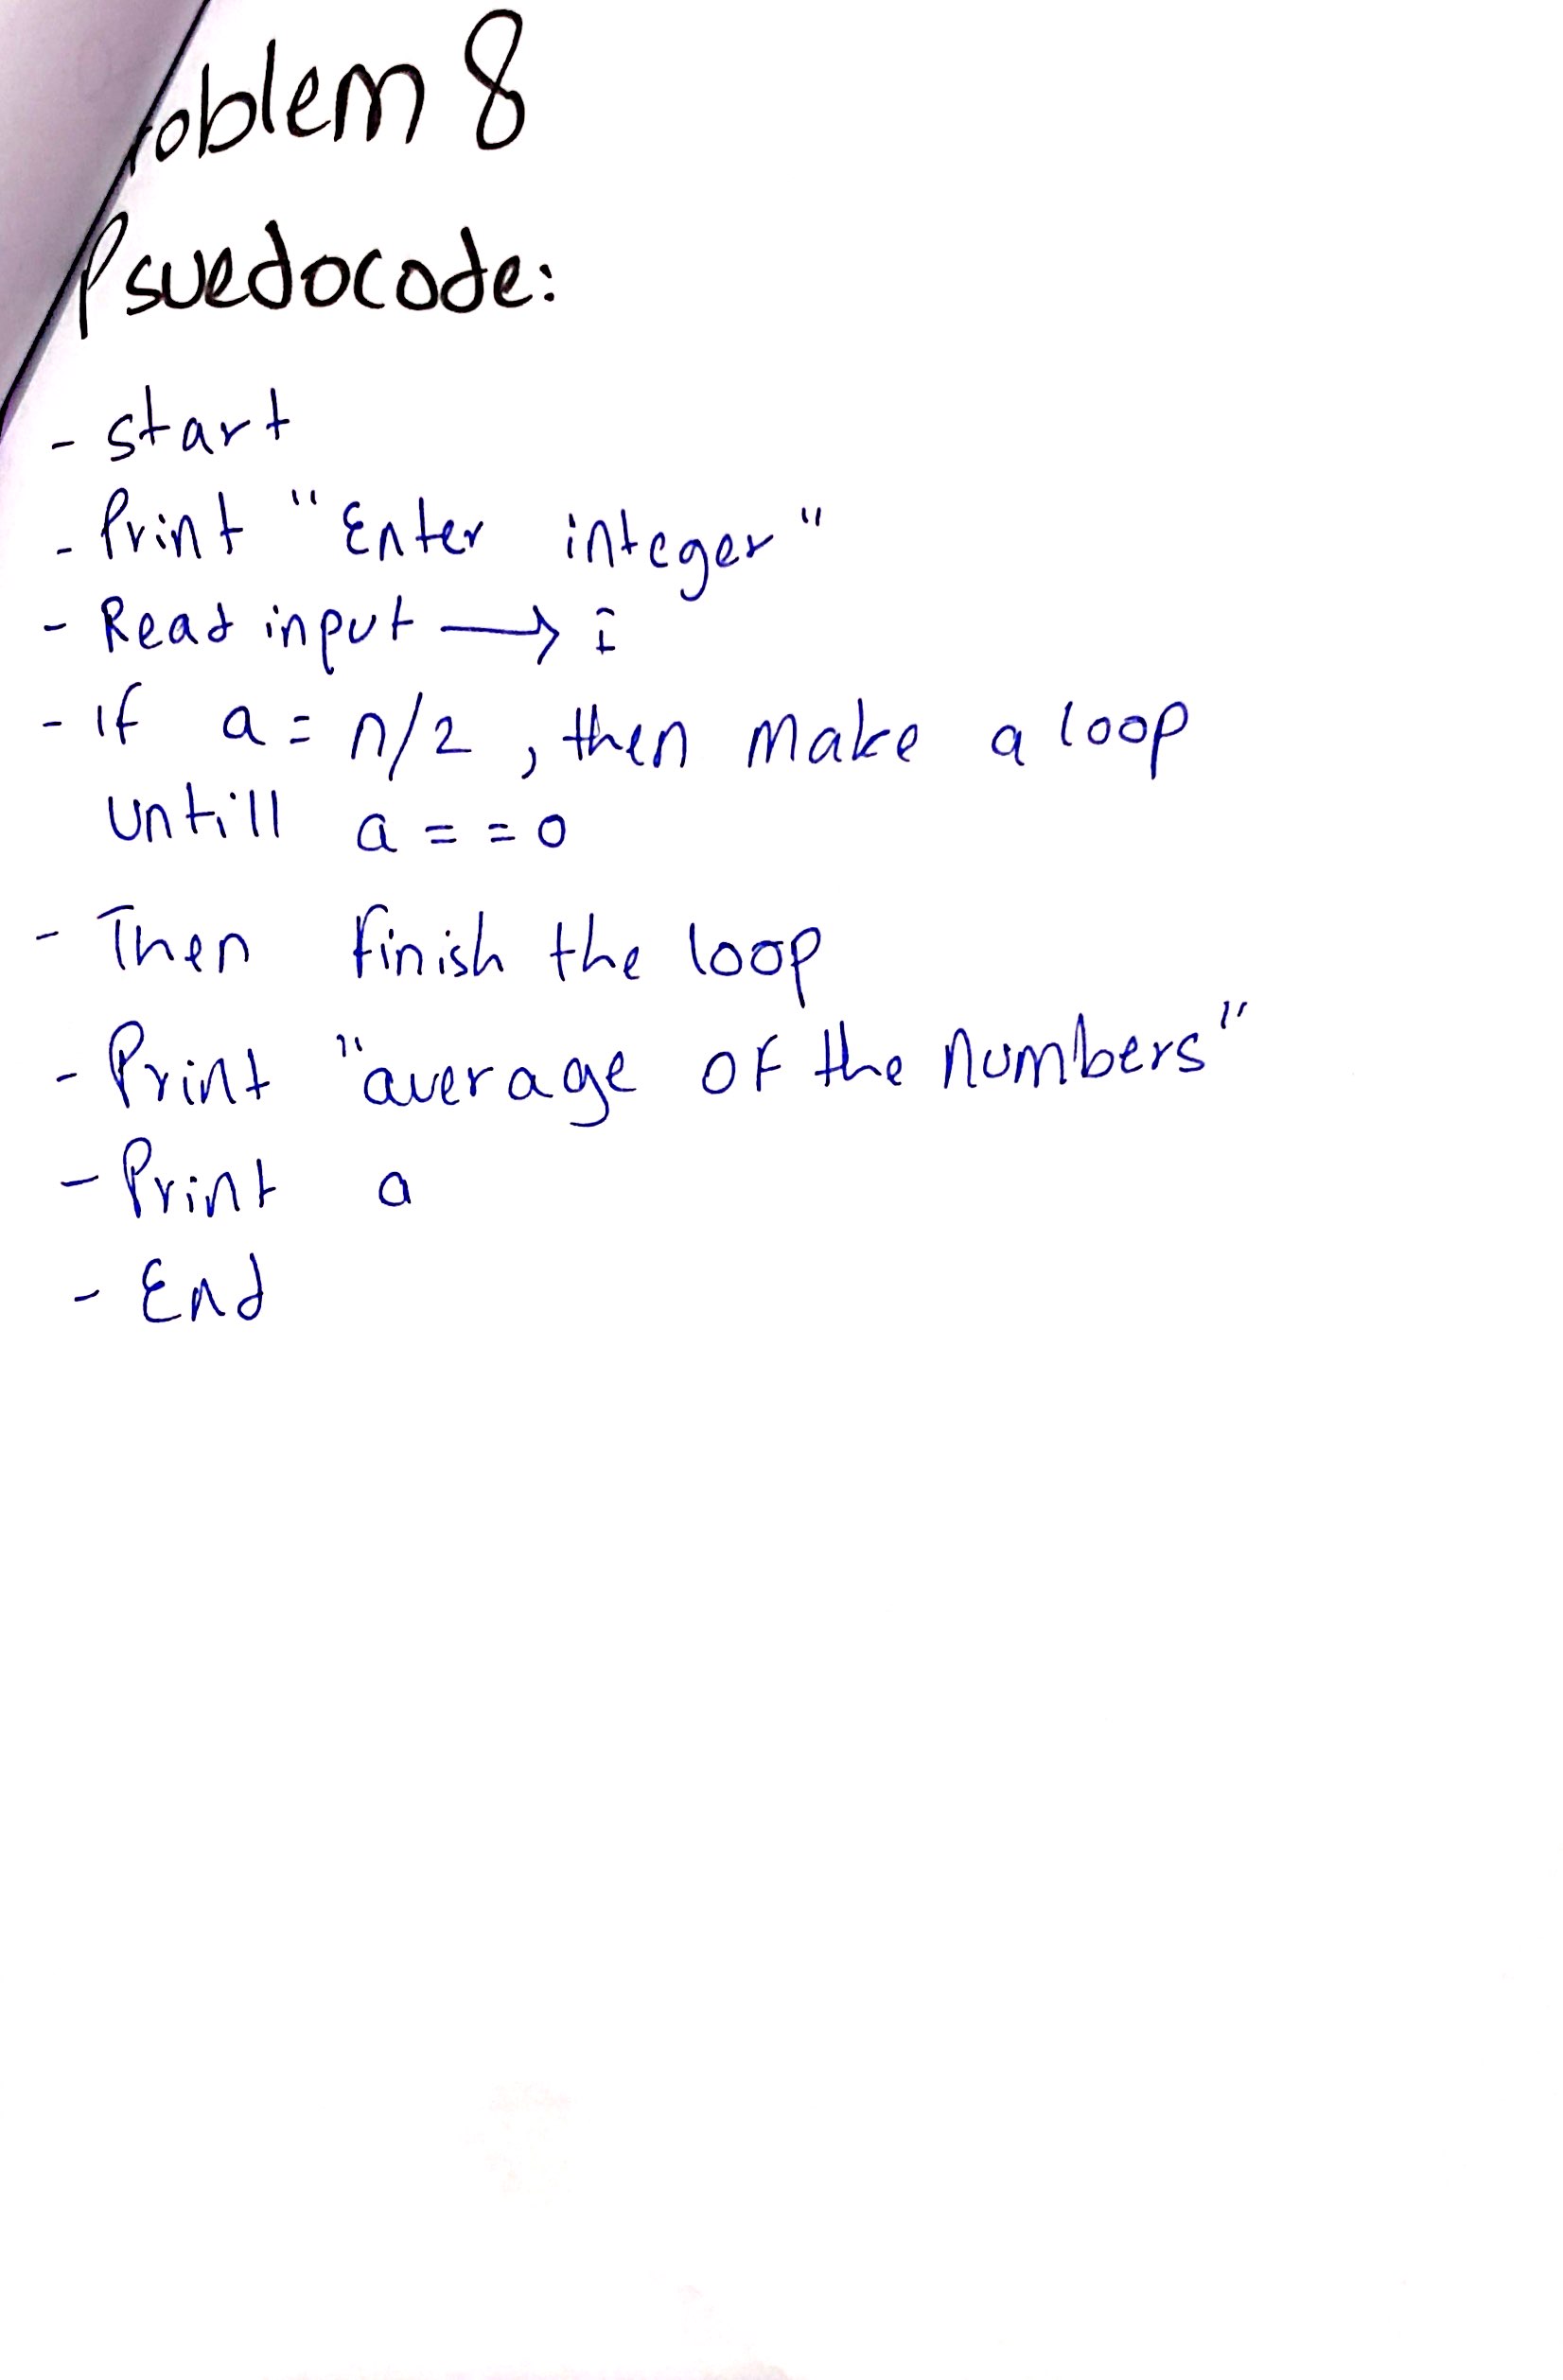 roblem 8
Psuedocode:
- start
- Print "Enter integer"
- Read input → i
- if a = n/2 , then make a loop
untill a = = 0
- Then finish the loop
- Print "average of the numbers"
- Print a
- End